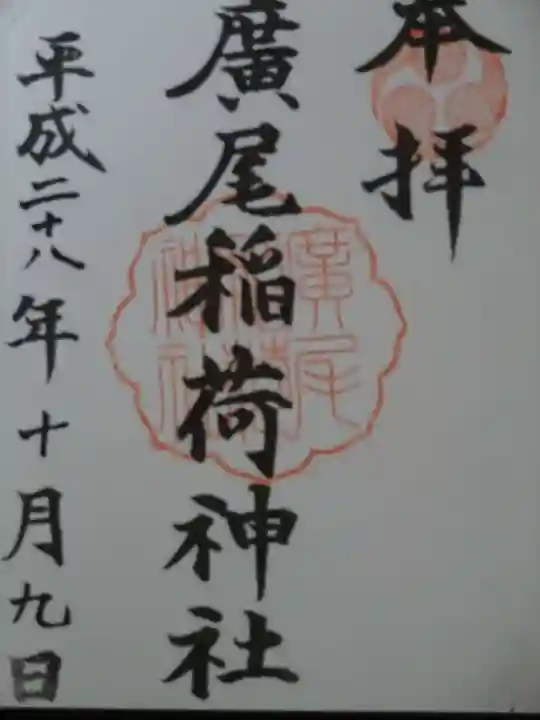 奉拝
廣尾稲荷神社
平成二十八年十月九日
廣尾
稲荷
神社